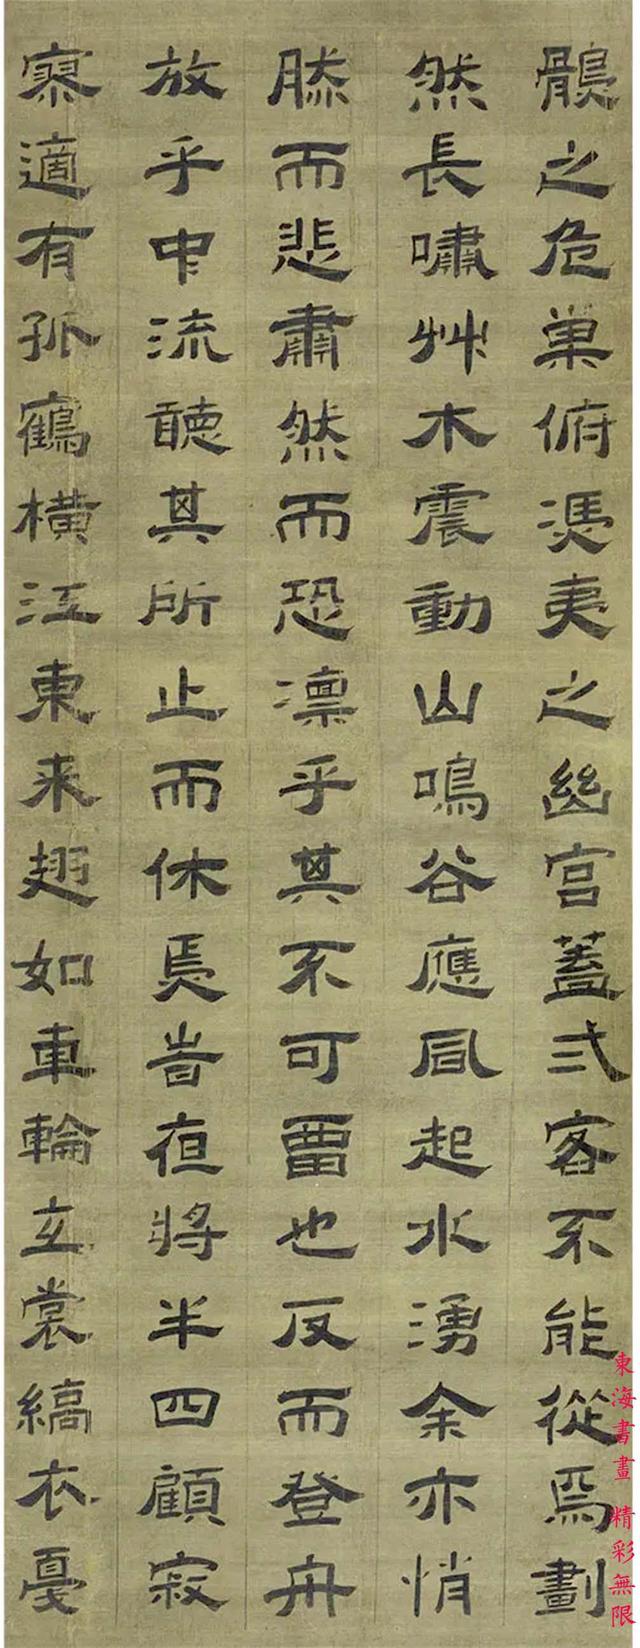 鶻之危巢俯馮夷之幽宮蓋弍客不能從焉劃
然長嘯艸木震動山鳴谷應風起水湧余亦悄
然而悲肅然而恐凜乎其不可畱也反而登舟
放乎中流聽其所止而休焉旹夜將半四顧寂
寥適有孤鶴橫江東來翅如車輪玄裳縞衣戛
東海書畫 精彩無限